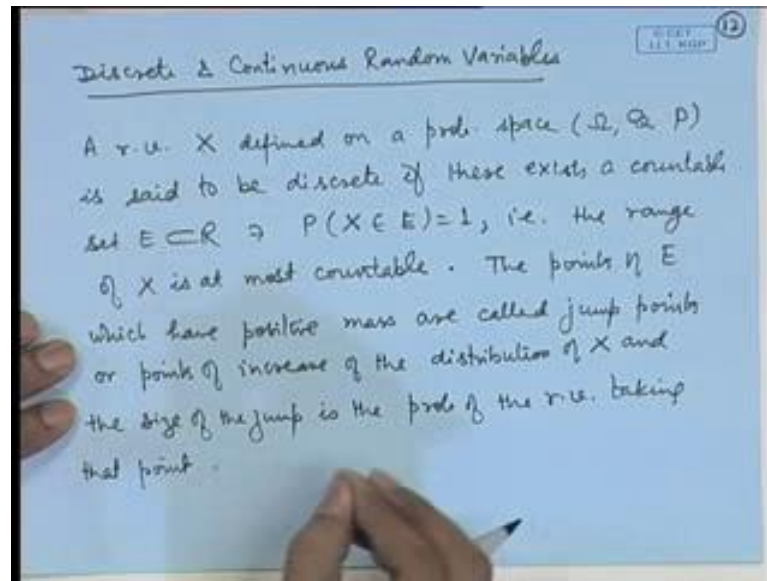 12
Discrete & Continuous Random Variables
A r.u. X defined on a prob. space (Ω, P)
is said to be discrete if there exists a countable
set E ⊂ R ∋ P(X ∈ E)=1, i.e. the range
of X is at most countable. The points of E
which have positive mass are called jump points
or points of increase of the distribution of X and
the size of the jump is the prob of the r.u. taking
that point.